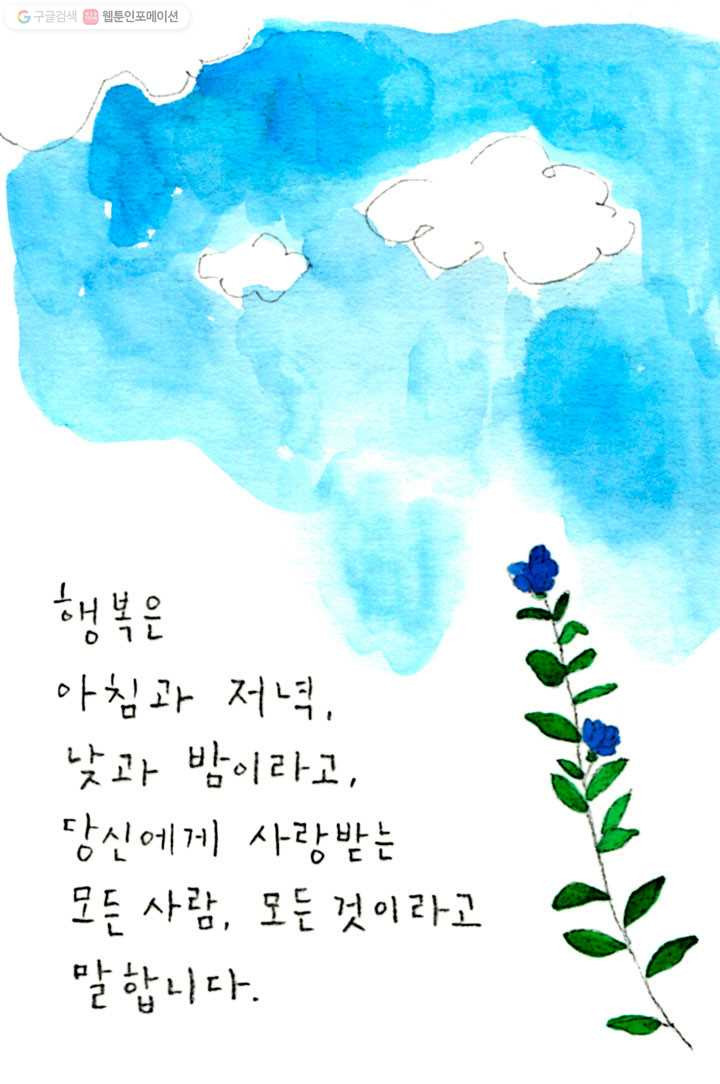 구글검색 웹툰인포메이션
행복은
아침과 저녁,
낮과 밤이라고,
당신에게 사랑받는
모든 사람, 모든 것이라고
말합니다.